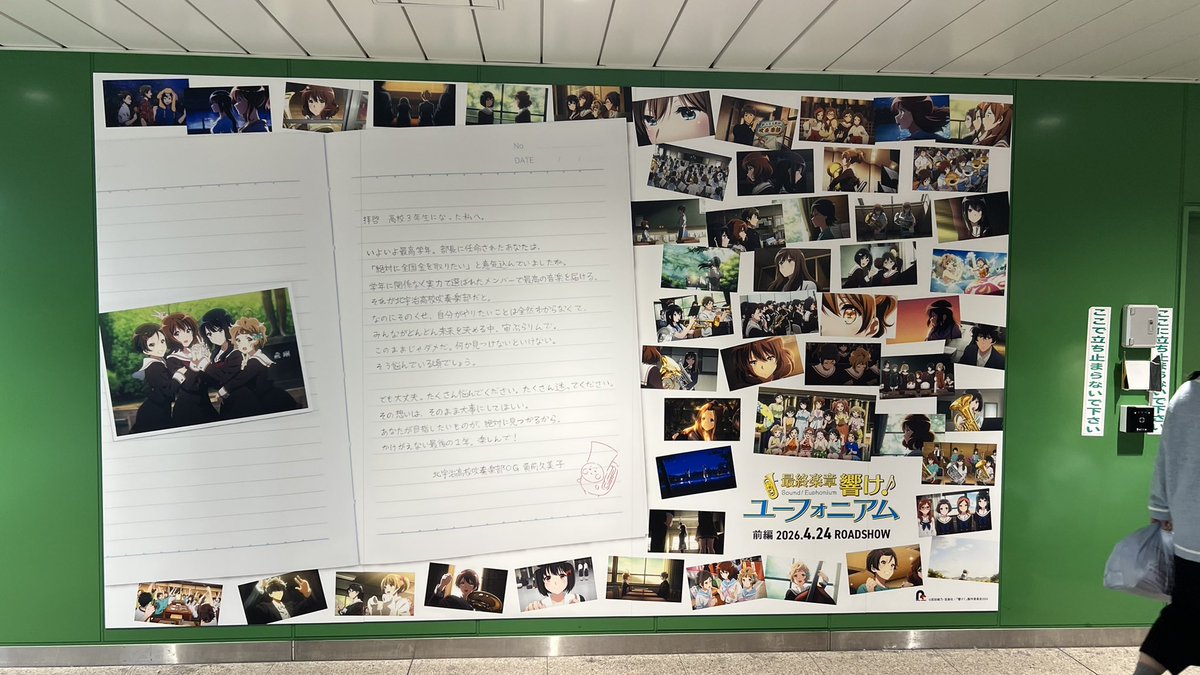 No.
DATE / /
拝啓 高校3年生になった私へ。
いよいよ最高学年。部長に任命されたあなたは、
「絶対に全国金を取りたい」と意気込んでいましたね。
学年に関係なく実力で選ばれたメンバーで最高の音楽を届ける。
それが北宇治高校吹奏楽部だと。
なのにそのくせ、自分がやりたいことは全然わからなくて、
みんながどんどん未来を決める中、宙ぶらりんで。
このままじゃダメだ。何か見つけないといけない。
そう悩んでいる頃でしょう。
でも大丈夫。たくさん悩んでください。たくさん迷ってください。
その想いは、そのまま大事にしてほしい。
あなたが目指したいものが、絶対に見つかるから。
かけがえない最後の1年。楽しんで!
北宇治高校吹奏楽部OG 黄前久美子
最終楽章 響け!
Sound! Euphonium
ユーフォニアム
前編 2026.4.24 ROADSHOW
ここで立ち止まらないで下さい
ここに立ち止まらないで下さい